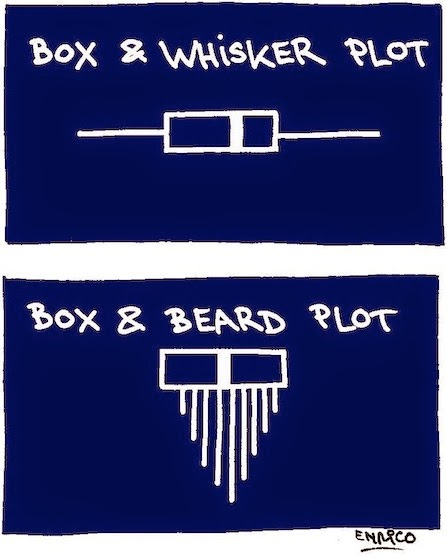 BOX & WHiSKER PLOT
BOX & BEARD PLOT
ENRICO